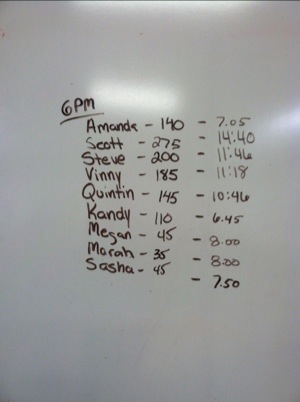 6PM
Amanda - 140 - 7.05
Scott - 275 - 14:40
Steve - 200 - 11:46
Vinny - 185 - 11:18
Quintin - 145 - 10:46
Kandy - 110 - 6.45
Megan - 45 - 8.00
Marah - 35 - 8.00
Sasha - 45 - 7.50